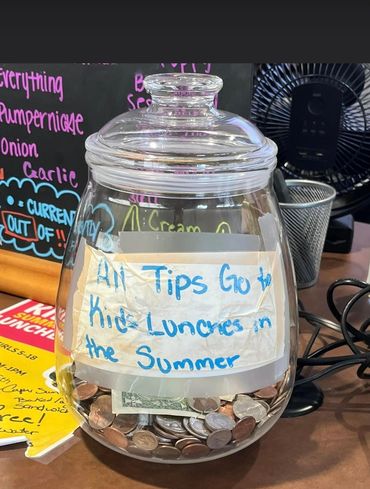 Everything
Pumpernickle
Onion
Garlic
CURRENT
OUT OF!!
Cream
All Tips Go to
Kids Lunches in
the Summer